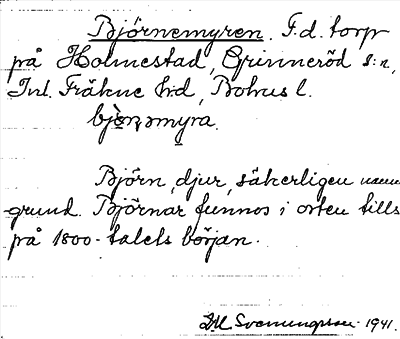 Björnemyren. F.d. torp
på Holmestad, Grinneröd s:n,
Inl. Fräkne h:d, Bohus l.
bjö̀ɳəmyra.
Björn, djur, säkerligen namn-
grund. Björnar funnos i orten tills
på 1800-talets början.
Svenungsson 1941.